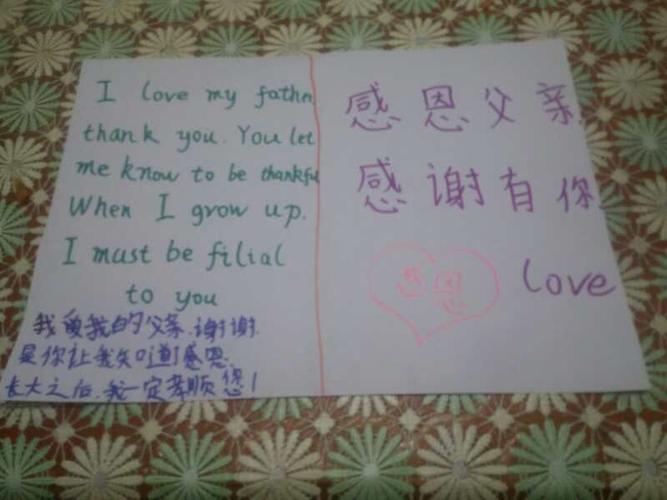 I love my father
thank you. You let
me know to be thankful
When I grow up.
I must be filial
to you
我爱我的父亲.谢谢.
是你让我知道感恩.
长大之后.我一定孝顺您!
感恩父亲.
感谢有你
感恩
love